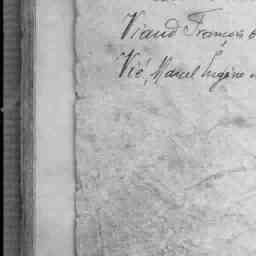 Viaud François
Vié, Marcel Eugène